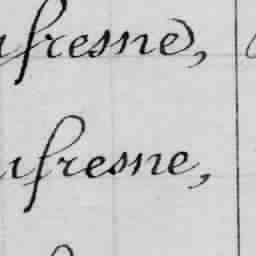 ufresne,
ufresne,